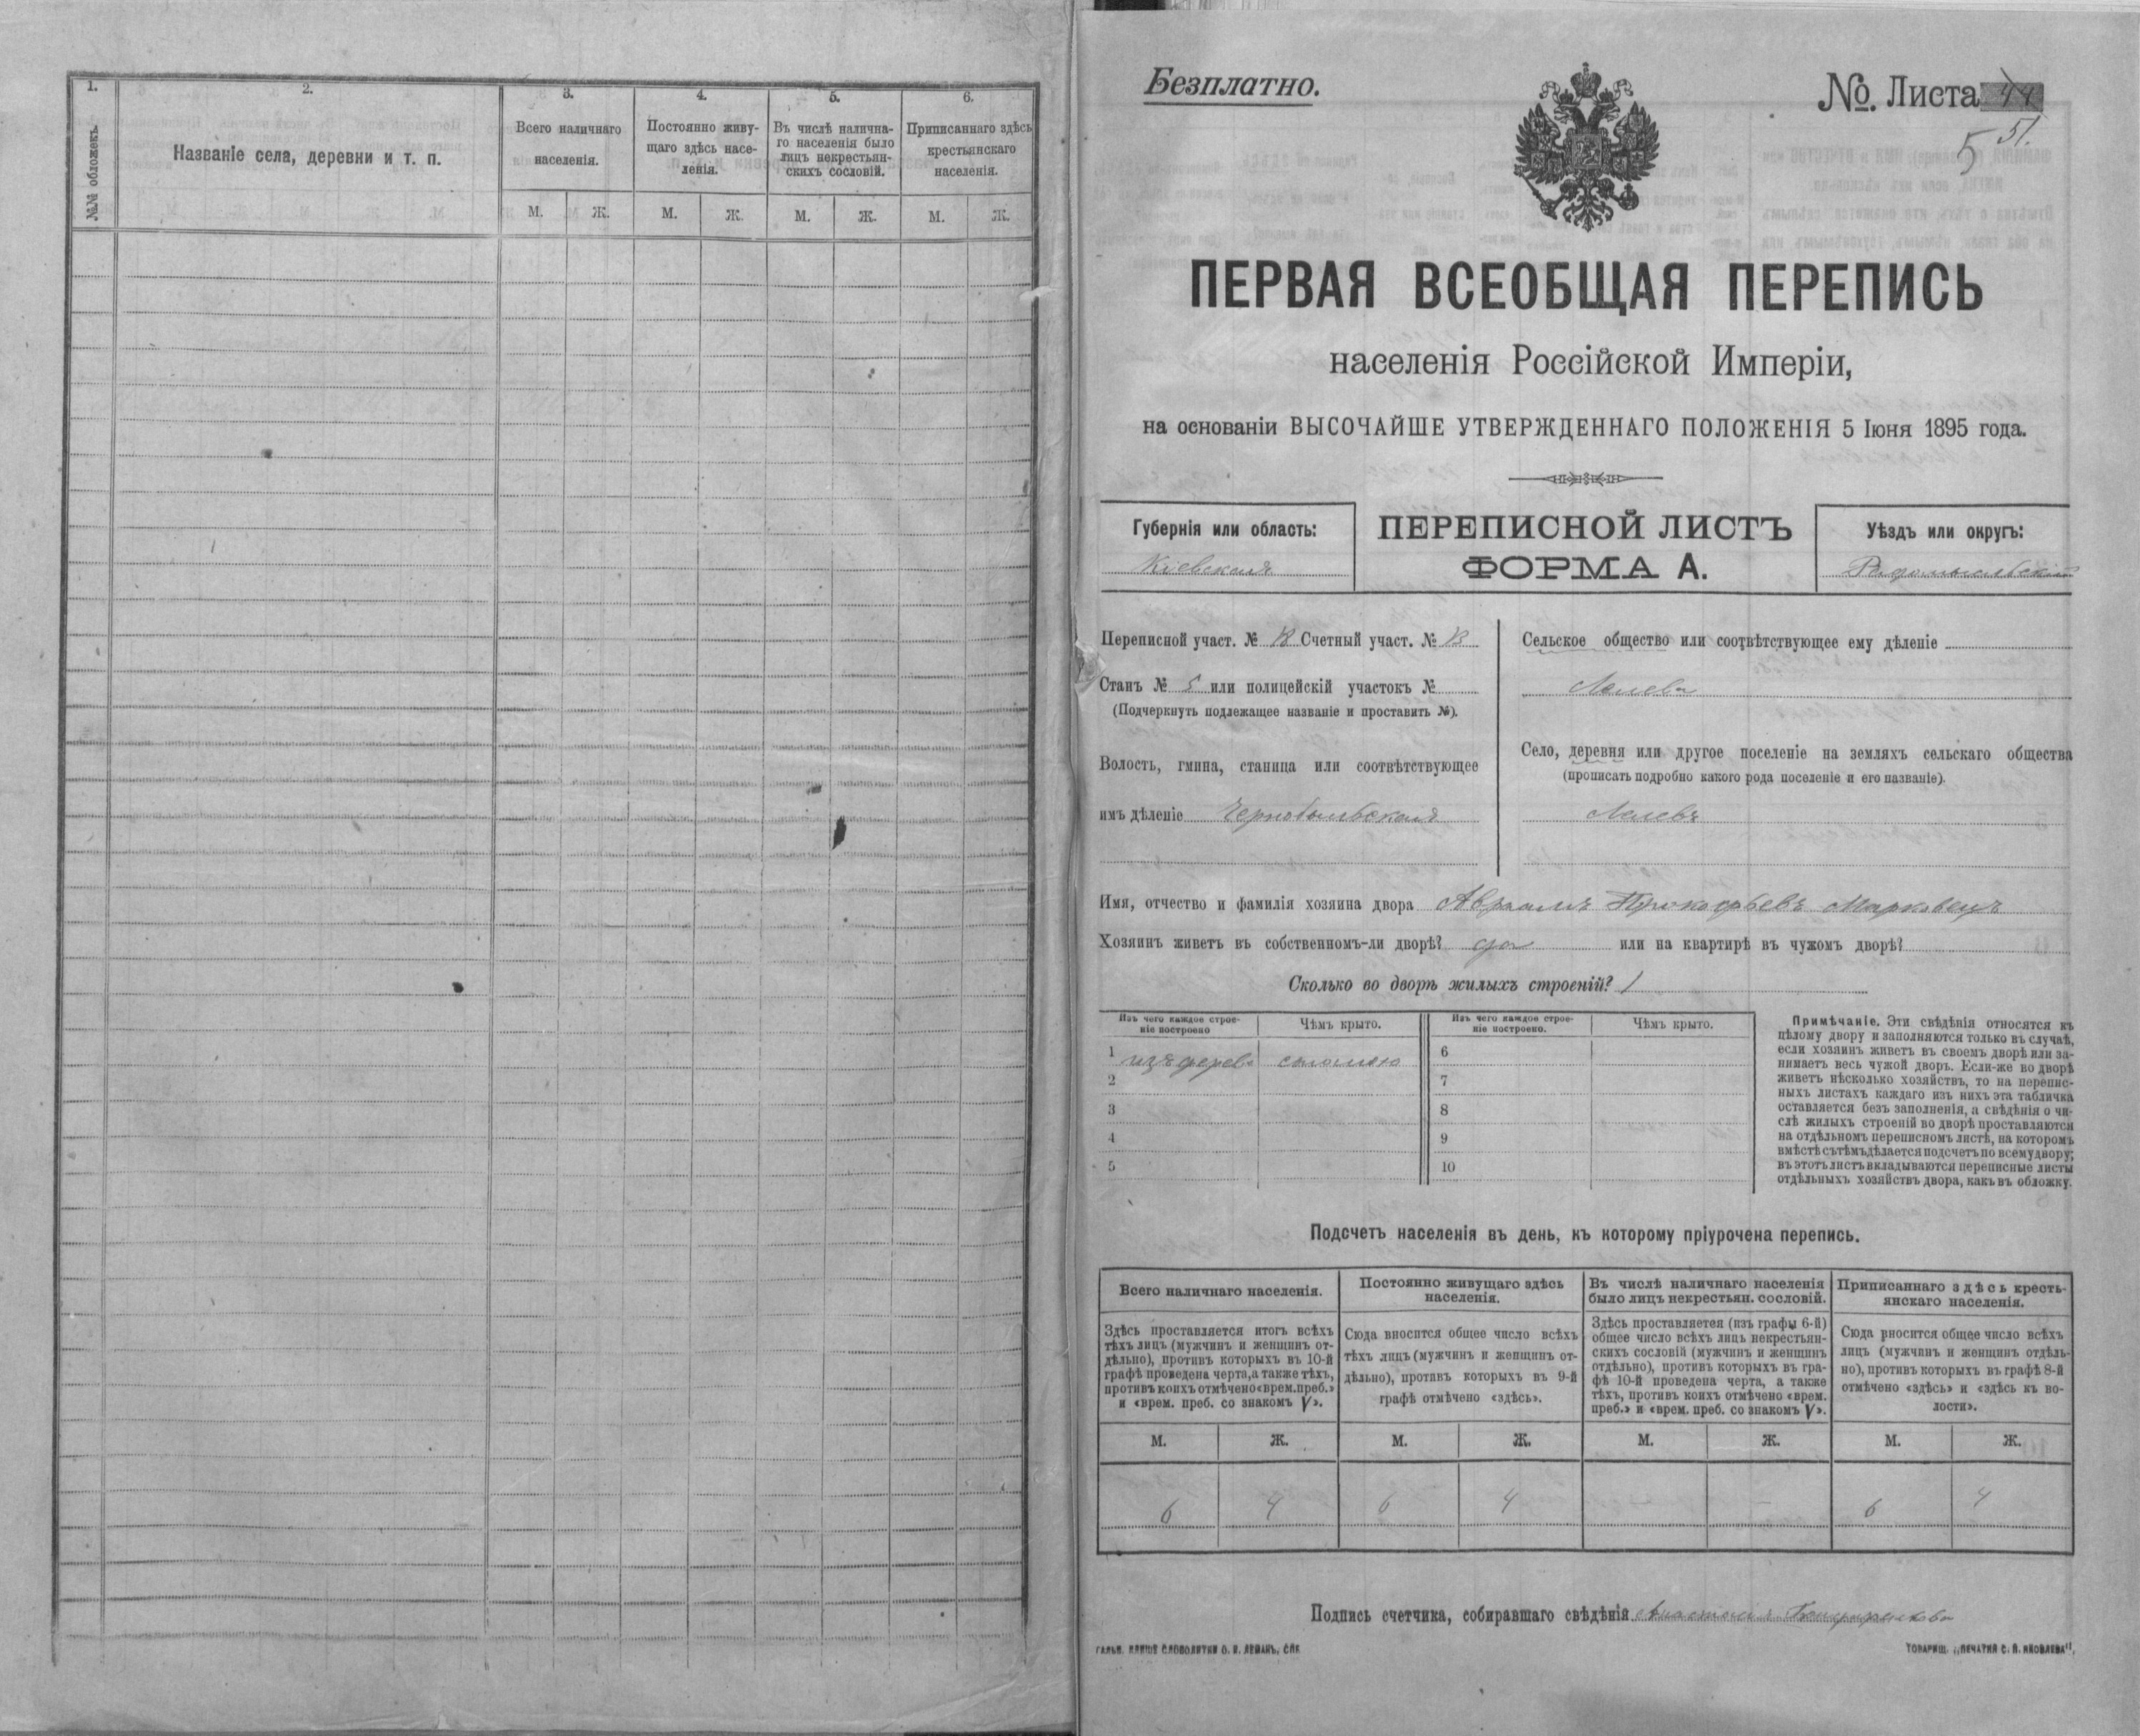 1.
2.
3.
4.
5.
6.
№№ обложекъ.
Названіе села, деревни и т. п.
Всего наличнаго
населенія.
Постоянно живу-
щаго здѣсь насе-
ленія.
Въ числѣ налична-
го населенія было
лицъ некрестьян-
скихъ сословій.
Приписаннаго здѣсь
крестьянскаго
населенія.
М. Ж. М. Ж. М. Ж. М. Ж.
Безплатно.
№. Листа 44
5 51.
ПЕРВАЯ ВСЕОБЩАЯ ПЕРЕПИСЬ
населенія Россійской Имперіи,
на основаніи ВЫСОЧАЙШЕ УТВЕРЖДЕННАГО ПОЛОЖЕНІЯ 5 Іюня 1895 года.
Губернія или область:
Кіевская
ПЕРЕПИСНОЙ ЛИСТЪ
ФОРМА А.
Уѣздъ или округъ:
Радомысльскій
Переписной участ. № Счетный участ. №
Станъ № 5 или полицейскій участокъ №
(Подчеркнуть подлежащее названіе и проставить №).
Волость, гмина, станица или соотвѣтствующее
имъ дѣленіе Чернобыльская
Сельское общество или соотвѣтствующее ему дѣленіе
Лелева
Село, деревня или другое поселеніе на земляхъ сельскаго общества
(прописать подробно какого рода поселеніе и его названіе).
Лелевъ
Имя, отчество и фамилія хозяина двора Авраамъ Прокофьевъ Марковецъ
Хозяинъ живетъ въ собственномъ-ли дворѣ? да или на квартирѣ въ чужомъ дворѣ?
Сколько во дворѣ жилыхъ строеній? 1
Изъ чего каждое строе-
ніе построено
Чѣмъ крыто.
Изъ чего каждое строе-
ніе построено.
Чѣмъ крыто.
1 изъ дерева соломою
2
3
4
5
6
7
8
9
10
Примѣчаніе. Эти свѣдѣнія относятся къ
цѣлому двору и заполняются только въ случаѣ,
если хозяинъ живетъ въ своемъ дворѣ или за-
нимаетъ весь чужой дворъ. Если-же во дворѣ
живетъ нѣсколько хозяйствъ, то на перепис-
ныхъ листахъ каждаго изъ нихъ эта табличка
оставляется безъ заполненія, а свѣдѣнія о чи-
слѣ жилыхъ строеній во дворѣ проставляются
на отдѣльномъ переписномъ листѣ, на которомъ
вмѣстѣ съ тѣмъ дѣлается подсчетъ по всему двору;
въ этотъ листъ вкладываются переписные листы
отдѣльныхъ хозяйствъ двора, какъ въ обложку.
Подсчетъ населенія въ день, къ которому пріурочена перепись.
Всего наличнаго населенія.
Постоянно живущаго здѣсь
населенія.
Въ числѣ наличнаго населенія
было лицъ некрестьян. сословій.
Приписаннаго здѣсь кресть-
янскаго населенія.
Здѣсь проставляется итогъ всѣхъ
тѣхъ лицъ (мужчинъ и женщинъ от-
дѣльно), противъ которыхъ въ 10-й
графѣ проведена черта, а также тѣхъ,
противъ коихъ отмѣчено «врем. преб.»
и «врем. преб. со знакомъ V».
Сюда вносится общее число всѣхъ
тѣхъ лицъ (мужчинъ и женщинъ от-
дѣльно), противъ которыхъ въ 9-й
графѣ отмѣчено «здѣсь».
Здѣсь проставляется (изъ графы 6-й)
общее число всѣхъ лицъ некрестьян-
скихъ сословій (мужчинъ и женщинъ
отдѣльно), противъ которыхъ въ гра-
фѣ 10-й проведена черта, а также
тѣхъ, противъ коихъ отмѣчено «врем.
преб.» и «врем. преб. со знакомъ V».
Сюда вносится общее число всѣхъ
лицъ (мужчинъ и женщинъ отдѣль-
но), противъ которыхъ въ графѣ 8-й
отмѣчено «здѣсь» и «здѣсь къ во-
лости».
М. Ж. М. Ж. М. Ж. М. Ж.
6 4 6 4 — 6 4
Подпись счетчика, собиравшаго свѣдѣнія
ГАЛЬВ. КЛИШЕ СЛОВОЛИТНИ О. И. ЛЕМАНЪ, СПБ.
ТОВАРИЩ. „ПЕЧАТНЯ С. П. ЯКОВЛЕВА".